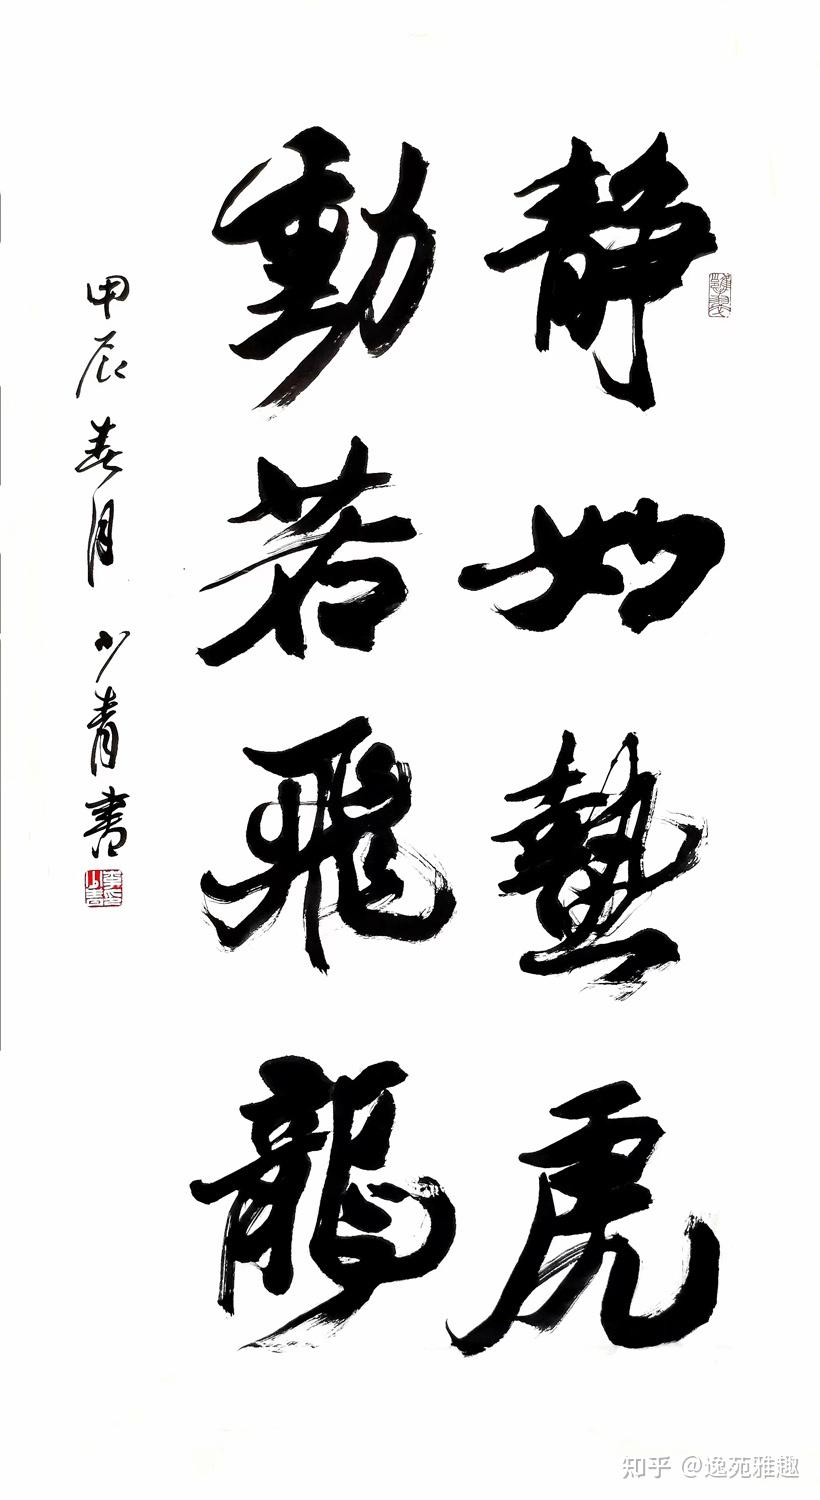 静如蟄虎
動若飛龍
甲辰春月 少青書
知乎 @逸苑雅趣